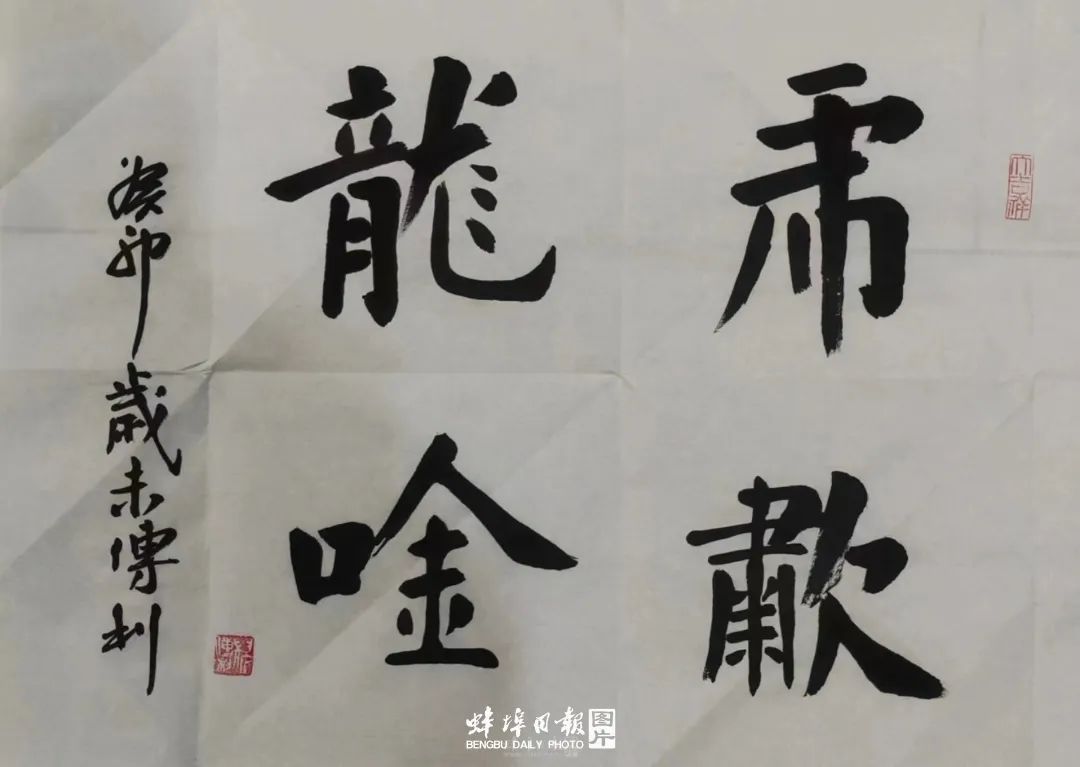 大吉祥
乕歗
龍唫
癸卯歲朱傳利
蚌埠日報 图片
BENGBU DAILY PHOTO